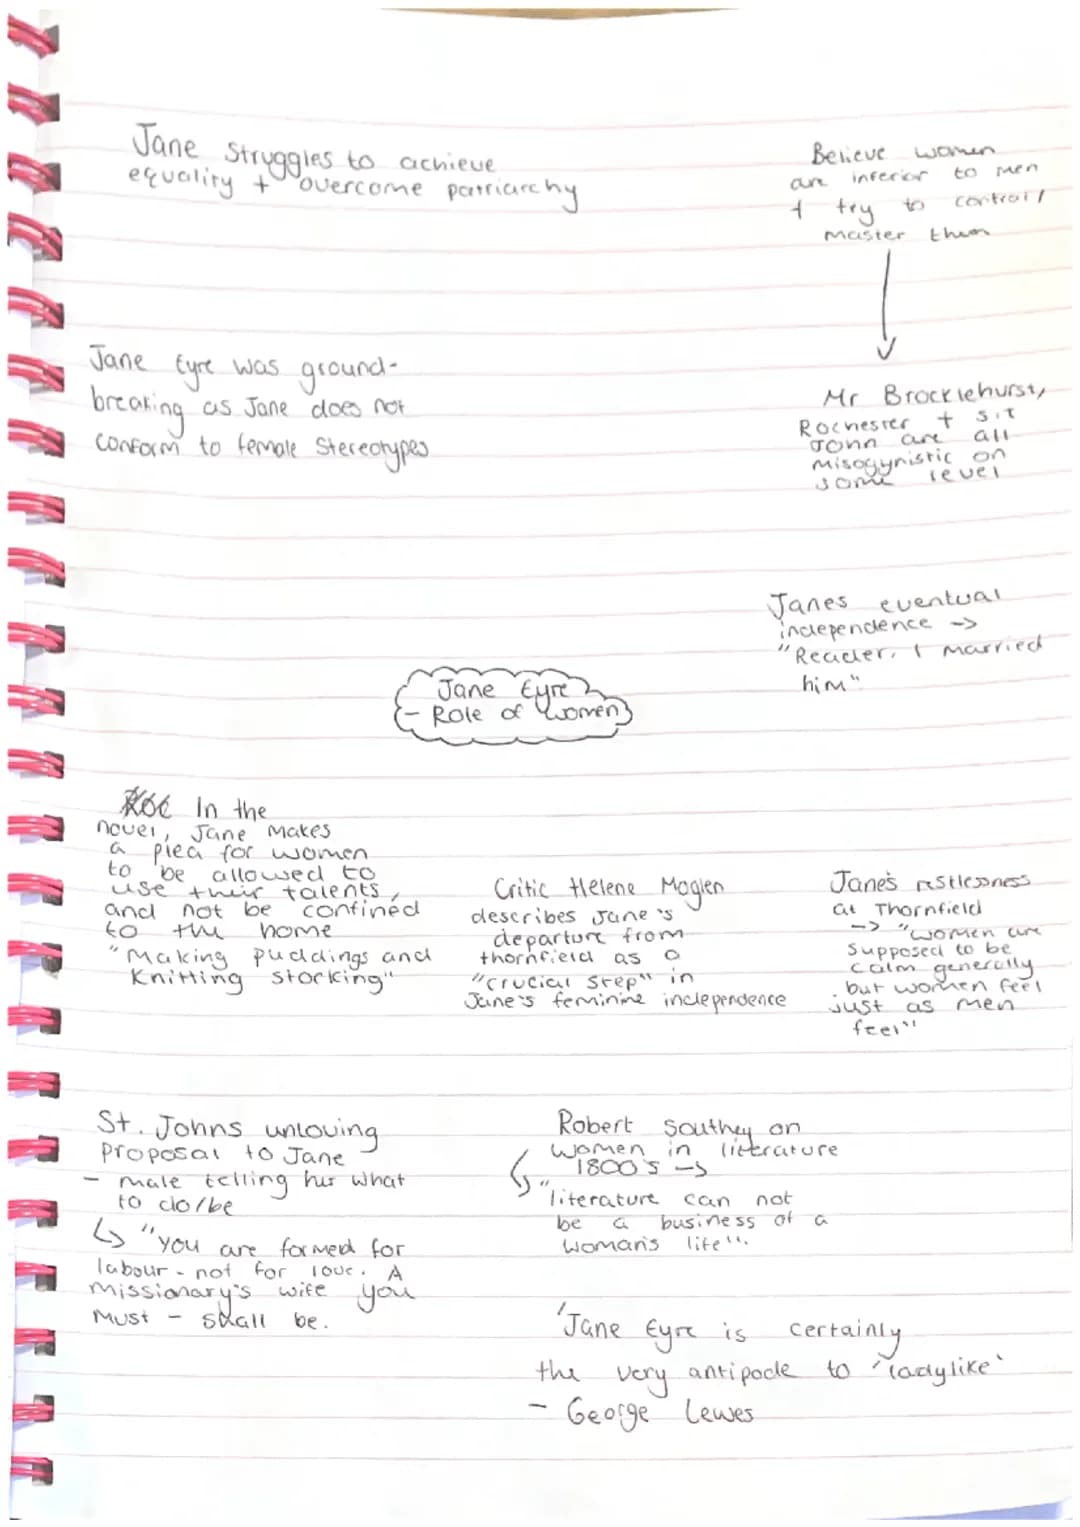 Jane Struggles to achieve
equality + overcome patriarchy
Believe women
are inferior to men
+ try to control/
master them
Jane Eyre was ground-
breaking as Jane does not
conform to female Stereotypes
Mr Brocklehurst,
Rochester + S.T
John are all
misogynistic on
some level
Janes eventual
independence ->
"Reader, I married
him"
Jane Eyre
- Role of women
In the
novel, Jane makes
a plea for women
to be allowed to
use their talents,
and not be confined
to the home
"Making puddings and
Knitting stocking"
Critic Helene Moglen
describes Jane's
departure from
thornfield as a
"crucial step" in
Jane's feminine independence
Jane's restlessness
at Thornfield
-> "women are
supposed to be
calm generally
but women feel
just as men
feel"
St. Johns unloving
proposal to Jane
- male telling her what
to do/be
↳ "you are formed for
labour - not for love. A
missionary's wife you
must - shall be.
Robert Southey on
women in litterature
1800's ->
"literature can not
be a business of a
woman's life".
'Jane Eyre is certainly
the very antipode to 'ladylike'
- George Lewes